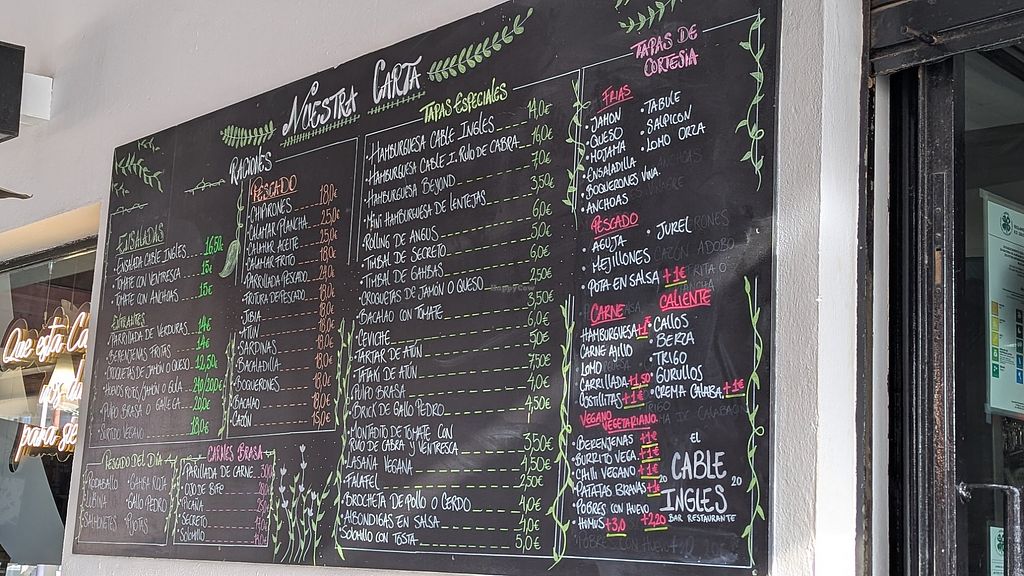 NUESTRA CARTA
RACIONES
ENSALADAS
· ENSALADA CABLE INGLES 16,50€
· TOMATE CON VENTRESCA 15€
· TOMATE CON ANCHOAS 15€
ENTRANTES
· PARRILLADA DE VERDURAS 14€
· BERENJENAS FRITAS 14€
· CROQUETAS DE JAMÓN O QUESO 12,50€
· HUEVOS ROTOS JAMÓN O GULA
· PULPO BRASA O GALLEGA
· SURTIDO VEGANO 18,0€
PESCADO
· CHIPIRONES 18,0€
· CALAMAR PLANCHA 25,0€
· CALAMAR ACEITE 25,0€
· CALAMAR FRITO
· PARRILLADA PESCADO
· FRITURA DE PESCADO 18,0€
· JIBIA 18,0€
· ATÚN 18,0€
· SARDINAS 18,0€
· BACALADILLA 18,0€
· BOQUERONES 18,0€
· BACALAO 18,0€
· CAZÓN 15,0€
PESCADO DEL DÍA
· RODABALLO
· LUBINA
· SALMONETES
· GAMBA ROJA
· GALLO PEDRO
CARNES BRASA
· PARILLADA DE CARNE
· OJO DE BIFE
· PICAÑA
· SECRETO
· SOLOMILLO
TAPAS ESPECIALES
· HAMBURGUESA CABLE INGLES 14,0€
· HAMBURGUESA CABLE I. RULO DE CABRA 16,0€
· HAMBURGUESA BEYOND 7,0€
· MINI HAMBURGUESA DE LENTEJAS 3,50€
· ROLLING DE ANGUS 6,0€
· TIMBAL DE SECRETO 5,0€
· TIMBAL DE GAMBAS 6,0€
· CROQUETAS DE JAMON O QUESO 2,50€
· BACALAO CON TOMATE 3,50€
· CEVICHE 6,0€
· TARTAR DE ATÚN 9,0€
· TATAKI DE ATÚN 7,50€
· PULPO BRASA 4,0€
· BRICK DE GALLO PEDRO 4,50€
· MONTADITO DE TOMATE CON
RULO DE CABRA Y VENTRESCA 3,50€
· LASAÑA VEGANA 4,50€
· FALAFEL 2,50€
· BROCHETA DE POLLO O CERDO 4,0€
· ALBONDIGAS EN SALSA 4,0€
· SOLOMILLO CON TOSTA 5,0€
TAPAS DE
CORTESIA
FRIAS
· JAMON
· QUESO
· MOJAMA
· ENSALADILLA
· BOQUERONES VINA.
· ANCHOAS
· TABULE
· SALPICON
· LOMO ORZA
PESCADO
· AGUJA
· MEJILLONES
· POTA EN SALSA +1€
· JUREL
CARNE
· HAMBURGUESA
· CARNE AJILLO
· LOMO
· CARRILLADA +1,50
· COSTILLITAS +1€
CALIENTE
· CALLOS
· BERZA
· TRIGO
· GURULLOS
· CREMA CALABA. +1€
VEGANO
VEGETARIANO
· BERENJENAS +1€
· BURRITO VEGA. +1€
· CHILI VEGANO +1€
· PATATAS BRAVAS +1€
· POBRES CON HUEVO +2,20
· HUMUS +3,0
EL
CABLE
20 INGLES 20
BAR RESTAURANTE
Que está
para se